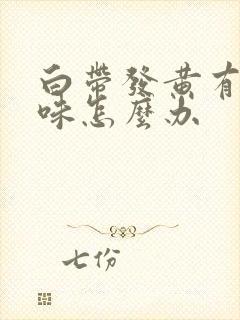 白帶發黃有
味怎麼办
七份